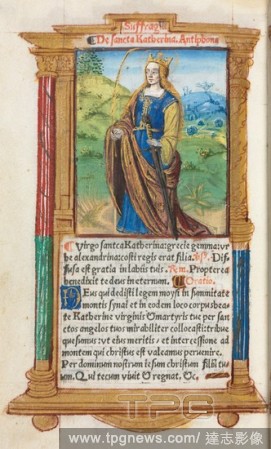 Suffragia
De sancta Katherina. Antiphona
Virgo sancta Katherina: grecie gemma: vr
be alexandrina: costi regis erat filia. ℣. Dif
fusa est gratia in labiis tuis. ℟. Propterea
benedixit te deus in eternum. Oratio.
Deus qui dedisti legem moysi in summitate
montis synai et in eodem loco corpus bea
te Katherine virginis & martyris tue per san
ctos angelos tuos mirabiliter collocasti: tribue
quesumus: vt eius meritis & intercessione ad
montem qui christus est valeamus peruenire.
Per dominum nostrum iesum christum filiū tu
um. Qui tecum viuit & regnat. &c.
TPG
www.tpgnews.com / 達志影像